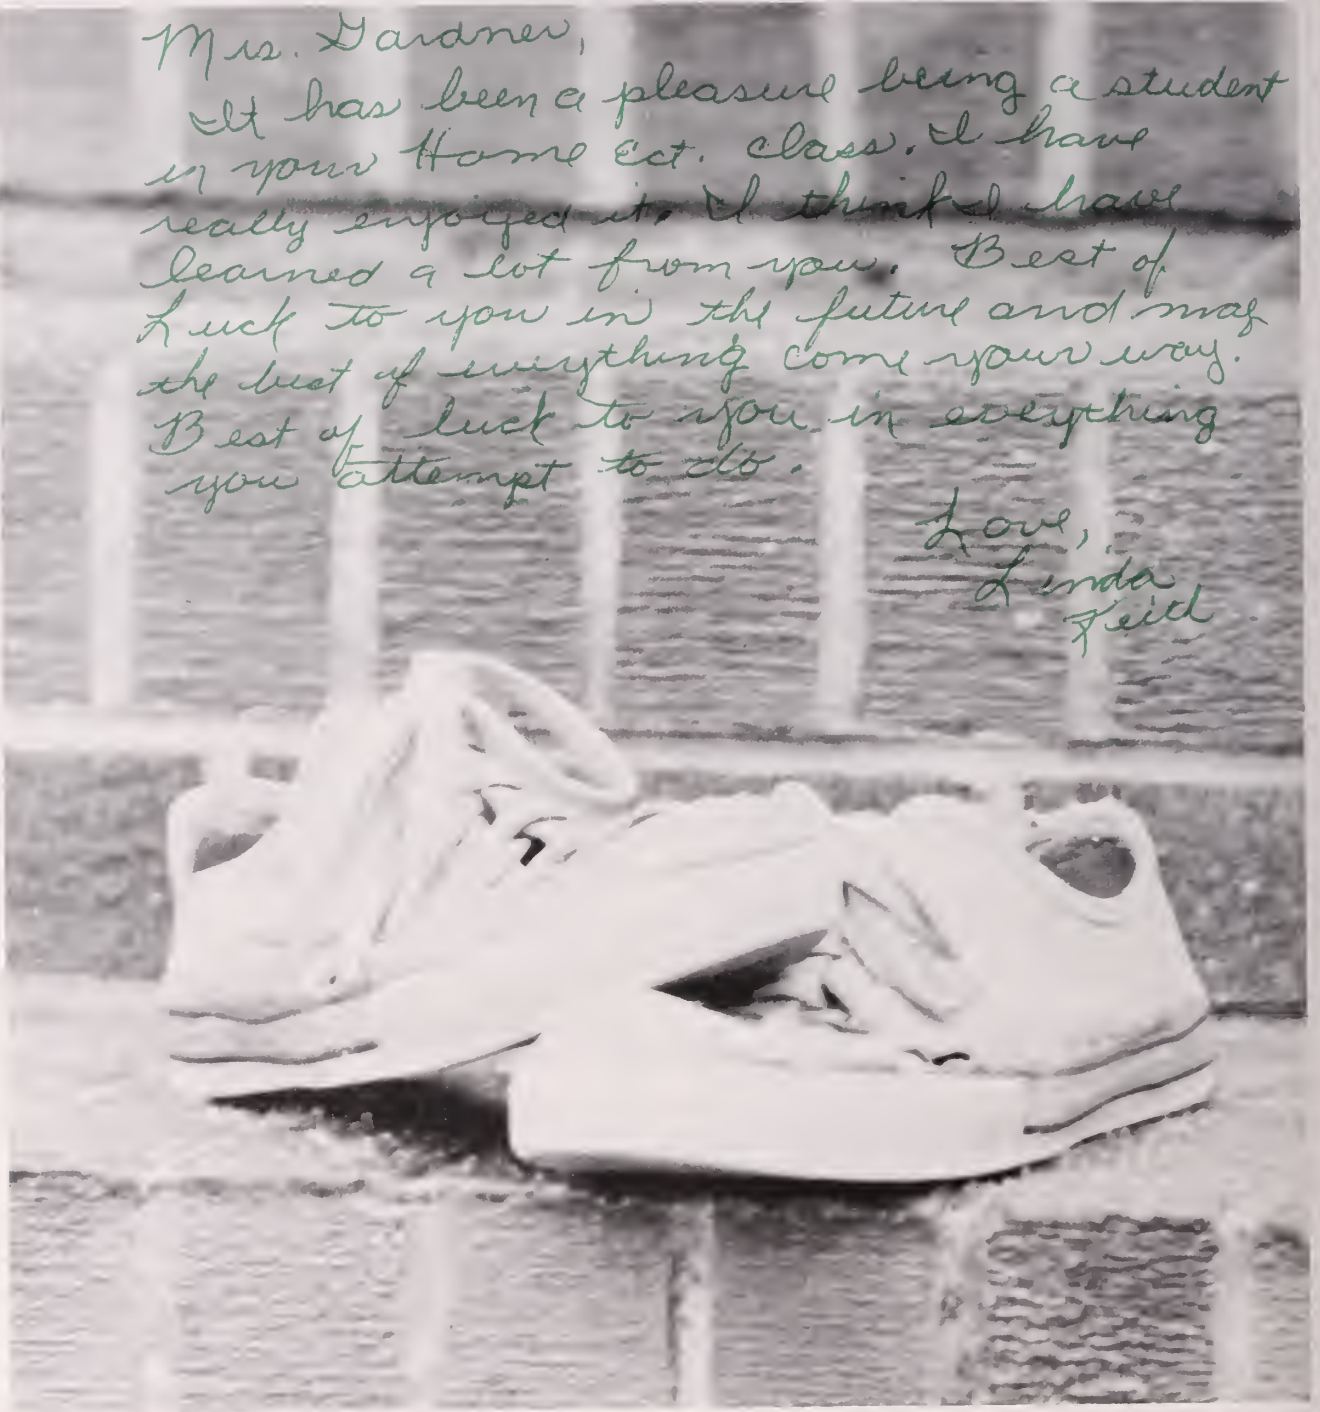 Mrs. Gardner,
It has been a pleasure being a student
in your Home Ect. class. I have
really enjoyed it. I think I have
learned a lot from you. Best of
Luck to you in the future and may
the best of everything come your way.
Best of luck to you in eveything
you attempt to do.
Love,
Linda
Keith